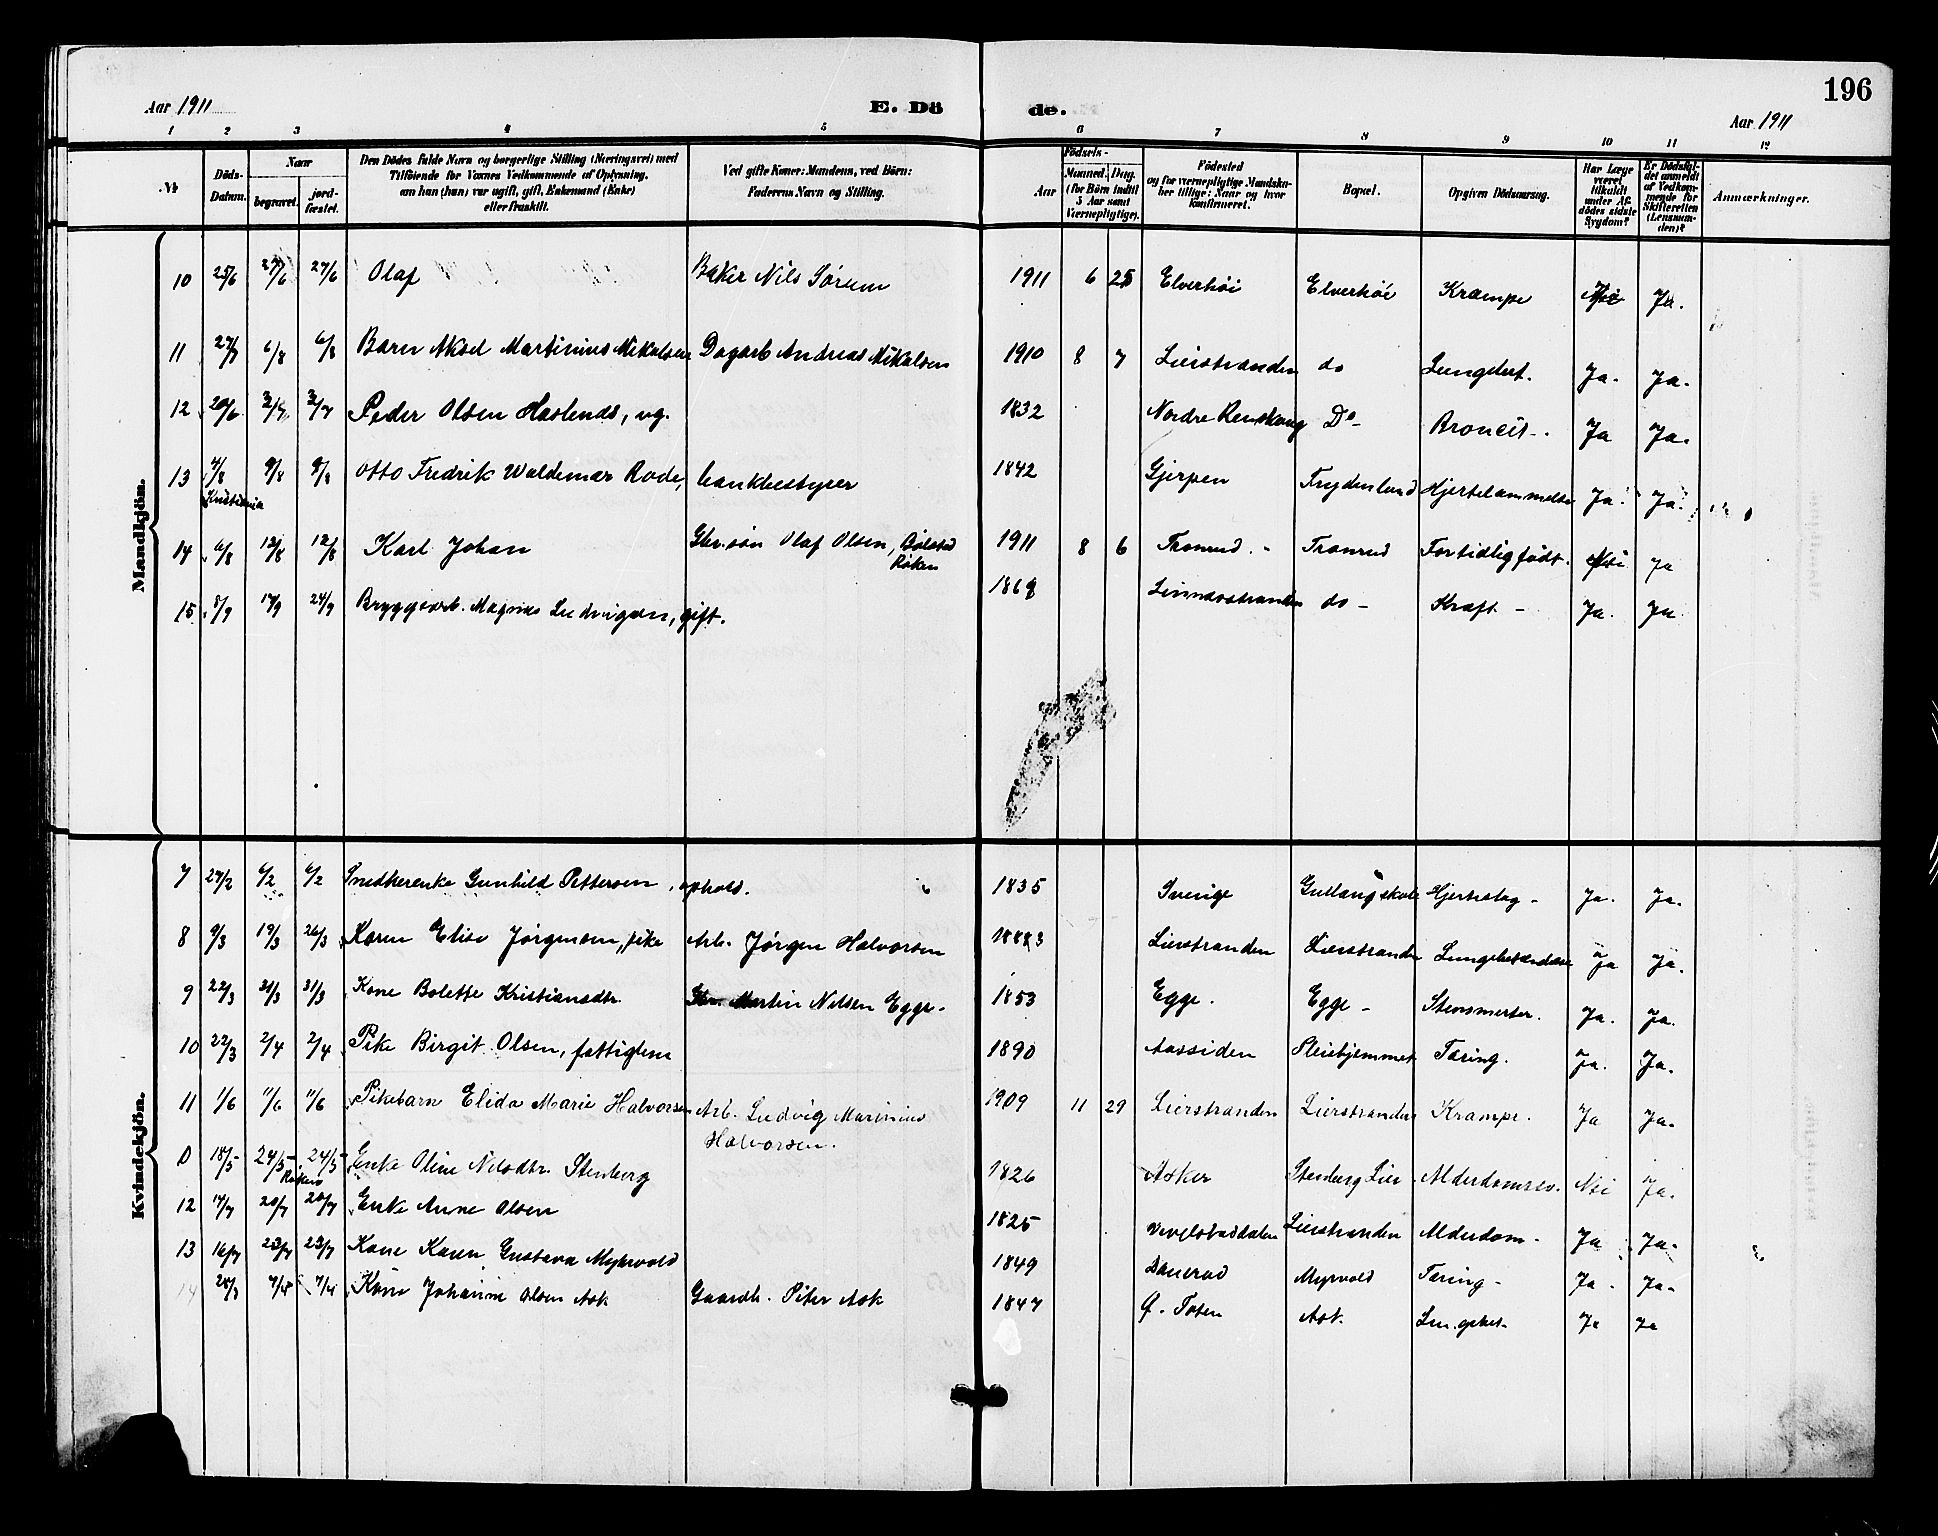 196
Aar 1911 E. Dö de. Aar 1911
1 2 3 4 5 6 7 8 9 10 11 12
№ Döds-Datum. Naar begravet. jord-fæstet. Den Dödes fulde Navn og borgerlige Stilling (Næringsvei) med Tilföiende for Voxnes Vedkommende af Oplysning, om han (hun) var ugift, gift, Enkemand (Enke) eller fraskilt. Ved gifte Koner: Mandens, ved Börn: Faderens Navn og Stilling. Födsels- Aar Maaned. Dag. (for Börn indtil 5 Aar samt Værnepligtige). Födested og for værnepligtige Mandskaber tillige: Naar og hvor konfirmeret. Bopæl. Opgiven Dödsaarsag. Har Læge været tilkaldt under Afdödes sidste Sygdom? Er Dödsfaldet anmeldt af Vedkommende for Skifteretten (Lensmanden)? Anmærkninger.
Mandkjön.
10 25/6 27/6 27/6 Olaf Baker Nils Sörum 1911 6 25 Elverhöi Elverhöi Krampe Nei Ja.
11 27/7 6/8 6/8 Barn Aksel Martinius Mikalsen Dagarb Andreas Mikalsen 1910 8 7 Lierstranden do Lungebet. Ja. Ja.
12 20/6 2/7 2/7 Peder Olsen Haslends, ug. 1832 Nordre Renskaug Do- Broncit-. Ja Ja.
13 4/8 Kristiania 9/8 9/8 Otto Fredrik Waldemar Rode, bankbestyrer 1842 Gjerpen Frydenlund Hjertelammelse Ja. Ja.
14 6/8 12/8 12/8 Karl Johan Gbr.sön Olaf Olsen, Bölstad Röken 1911 8 6 Tranrud.- Tranrud Fortidlig födt. Nei Ja
15 8/9 17/9 24/9 Bryggearb. Magnus Ludvigsen, gift. 1869 Linnesstranden do- Kræft- Ja. Ja
Kvindekjön.
7 27/2 6/2 6/2 Snedkerenke Gunhild Pettersen, ophold. 1835 Sverige Gullaug skole Hjerteslag- Ja. Ja.
8 9/3 19/3 26/3 Karen Elise Jørgensen, pike Arb. Jørgen Halvorsen 1883 Lierstranden Lierstranden Lungebetændelse Ja Ja.
9 22/3 31/3 31/3 Kone Bolette Kristiansdtr Gbr. Martin Nilsen Egge- 1853 Egge. Egge- Stensmerter. Ja. Ja.
10 22/3 2/4 2/4 Pike Birgit Olsen, fattiglem 1890 Aassiden Pleiehjemmet Tæring. Ja. Ja.
11 1/6 11/6 11/6 Pikebarn Elida Marie Halvorsen Arb. Ludvig Marinius Halvorsen. 1909 11 29 Lierstranden Lierstranden Krampe. Ja Ja.
0 18/5 24/5 Röken 24/5 Enke Oline Nilsdtr. Stenberg 1826 Asker Stenberg Lier Alderdomssv. Nei Ja.
12 14/7 20/7 20/7 Enke Anne Olsen 1825 Lierstranden Alderdom- Ja Ja.
13 16/7 23/7 23/7 Kone Karen Gustava Myhrvold 1849 Myrvold Tæring- Ja. Ja.
14 28/3 7/4 7/4 Kone Johanne Olsen Ask Gaardb. Peter Ask 1847 Ø. Toten Ask. Lungebet- Ja Ja